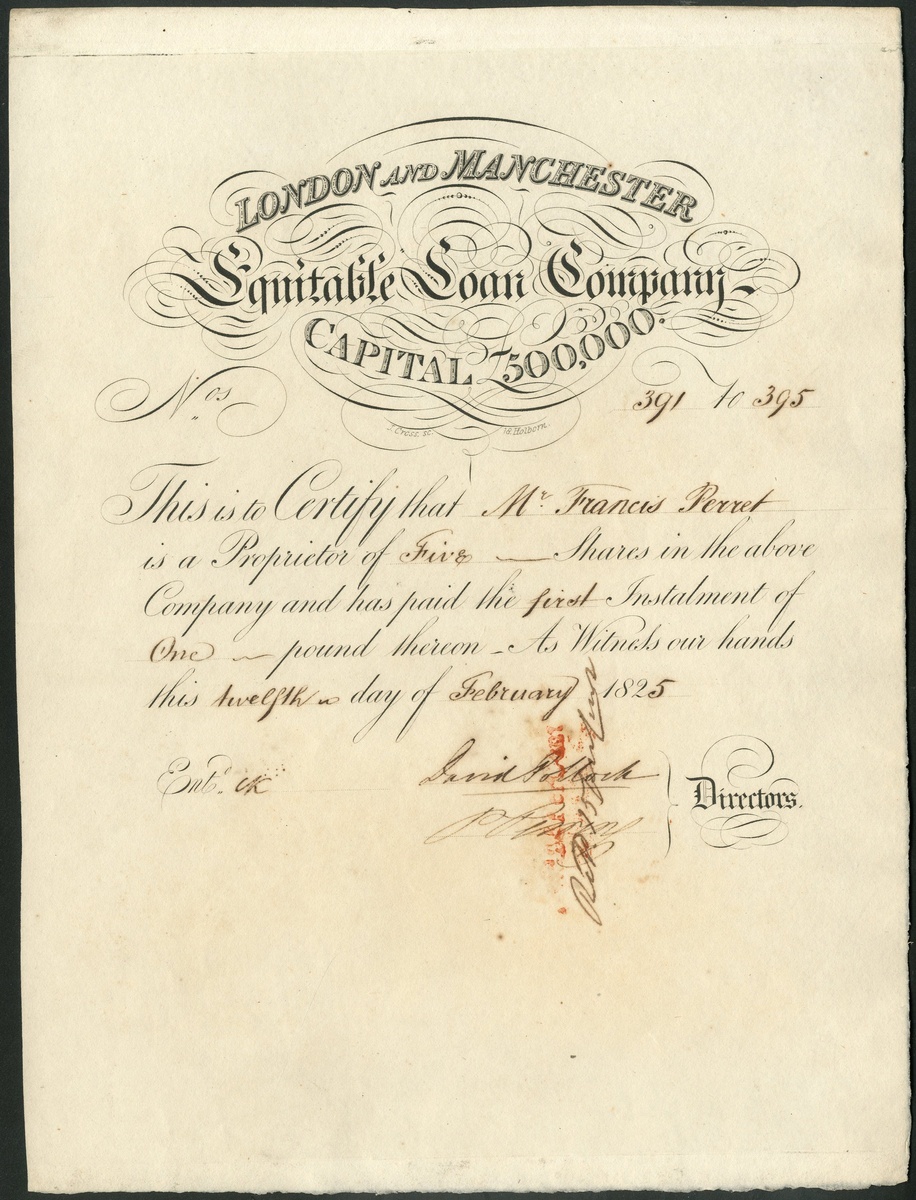 LONDON AND MANCHESTER
Equitable Loan Company
CAPITAL £500,000.
Nos 391 to 395
J. Cross, sc. 18 Holborn.
This is to Certify that Mr. Francis Perret
is a Proprietor of Five Shares in the above
Company and has paid the first Instalment of
One pound thereon - As Witness our hands
this twelfth day of February 1825
Entd.
David Pollock
Directors.